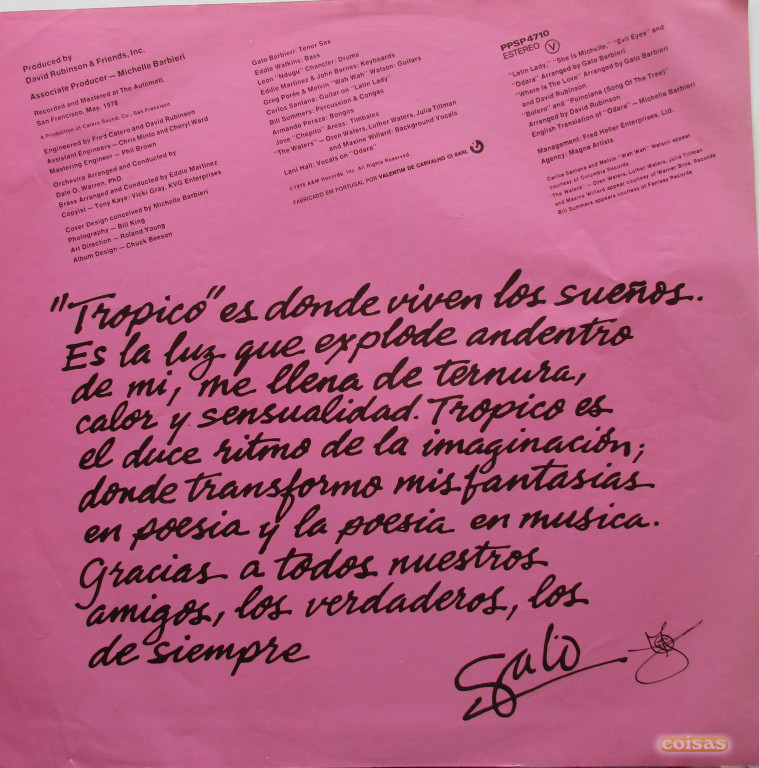 Produced by
David Rubinson & Friends, Inc.
Associate Producer — Michelle Barbieri
Recorded and Mastered at The Automatt,
San Francisco, May, 1978
A Production of Catero Sound, Co., San Francisco
Engineered by Fred Catero and David Rubinson
Assistant Engineers — Chris Minto and Cheryl Ward
Mastering Engineer — Phil Brown
Orchestra Arranged and Conducted by
Dale O. Warren, PhD.
Brass Arranged and Conducted by Eddie Martinez
Copyist — Tony Kaye: Vicki Gray, KVG Enterprises
Cover Design conceived by Michelle Barbieri
Photography — Bill King
Art Direction — Roland Young
Album Design — Chuck Beeson
Gato Barbieri: Tenor Sax
Eddie Watkins: Bass
Leon "Ndugu" Chancler: Drums
Eddie Martinez & John Barnes: Keyboards
Greg Porée & Melvin "Wah Wah" Watson: Guitars
Carlos Santana: Guitar on "Latin Lady"
Bill Summers: Percussion & Congas
Armando Peraza: Bongos
Jose "Chepito" Areas: Timbales
"The Waters" — Oren Waters, Luther Waters, Julia Tillman
and Maxine Willard: Background Vocals
Lani Hall: Vocals on "Odara"
©1978 A&M Records, Inc. All Rights Reserved.
FABRICADO EM PORTUGAL POR VALENTIM DE CARVALHO CI SARL
PPSP4710
ESTEREO V
"Latin Lady," "She Is Michelle," "Evil Eyes" and
"Odara" Arranged by Gato Barbieri
"Where Is The Love" Arranged by Gato Barbieri
and David Rubinson
"Bolero" and "Poinciana (Song Of The Tree)"
Arranged by David Rubinson
English Translation of "Odara" — Michelle Barbieri
Management: Fred Heller Enterprises, Ltd.
Agency: Magna Artists
Carlos Santana and Melvin "Wah Wah" Watson appear
courtesy of Columbia Records
"The Waters" — Oren Waters, Luther Waters, Julia Tillman
and Maxine Willard appear courtesy of Warner Bros. Records
Bill Summers appears courtesy of Fantasy Records
"Tropico" es donde viven los sueños.
Es la luz que explode andentro
de mi, me llena de ternura,
calor y sensualidad. Tropico es
el duce ritmo de la imaginación;
donde transformo mis fantasias
en poesia y la poesia en musica.
Gracias a todos nuestros
amigos, los verdaderos, los
de siempre
Gato
coisas